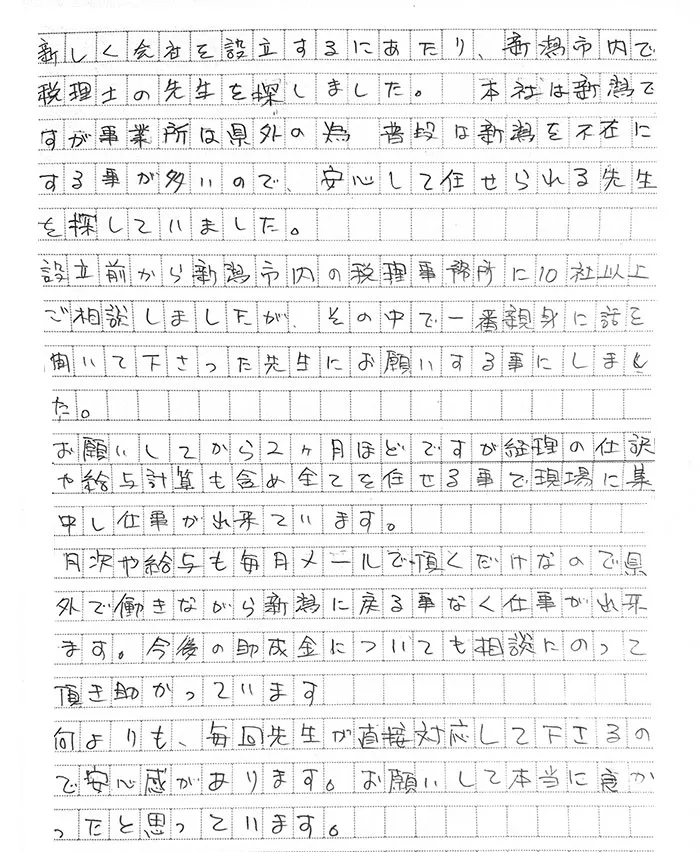 新しく会社を設立するにあたり、新潟市内で
税理士の先生を探しました。 本社は新潟で
すが事業所は県外の為 普段は新潟を不在に
する事が多いので、安心して任せられる先生
を探していました。
設立前から新潟市内の税理事務所に10社以上
ご相談しましたが、その中で一番親身に話を
聞いて下さった先生にお願いする事にしまし
た。
お願いしてから2ヶ月ほどですが経理の仕訳
や給与計算も含め全てを任せる事で現場に集
中し仕事が出来ています。
月次や給与も毎月メールで頂くだけなので県
外で働きながら新潟に戻る事なく仕事が出来
ます。今後の助成金についても相談にのって
頂き助かっています
何よりも、毎回先生が直接対応して下さるの
で安心感があります。お願いして本当に良か
ったと思っています。